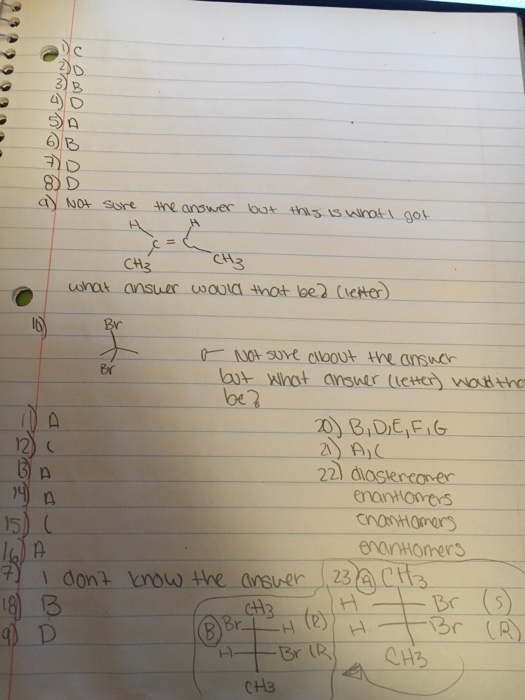 1) C
2) D
3) B
4) D
5) A
6) B
7) D
8) D
9) Not sure the answer but this is what I got
H H
C = C
CH3 CH3
what answer would that be? (letter)
10) Br
Br
Not sure about the answer
but what answer (letter) would tha
be?
11) A
12) C
13) A
14) A
15) C
16) A
7) I don't know the answer
18) B
9) D
20) B,D,E,F,G
21) A,C
22) diastereomer
enantiomers
enantiomers
enantiomers
23) A CH3
H Br (S)
H Br (R)
CH3
B CH3
Br H (R)
H Br (R
CH3